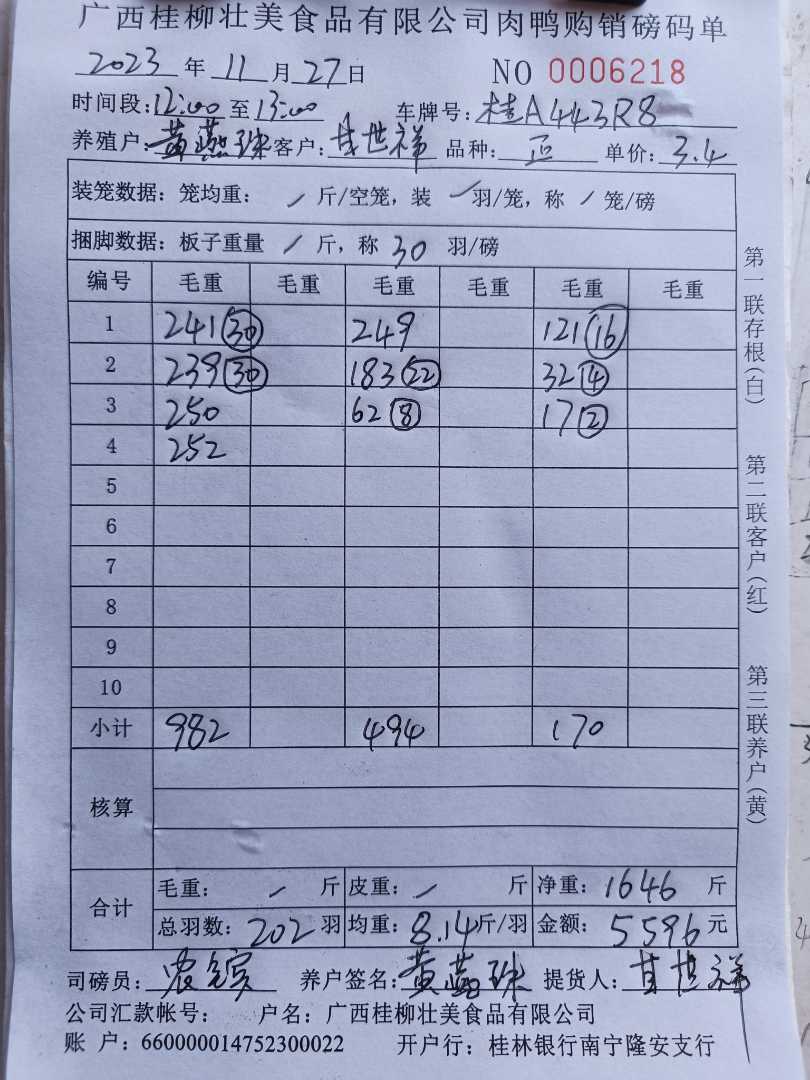 广西桂柳壮美食品有限公司肉鸭购销磅码单
2023 年 11 月 27 日 NO 0006218
时间段:12:00 至 13:00 车牌号:桂A443R8
养殖户:黄燕珠 客户:甘世祥 品种: 单价:3.4
装笼数据:笼均重: / 斤/空笼,装 / 羽/笼,称 / 笼/磅
捆脚数据:板子重量 / 斤,称 30 羽/磅
编号 毛重 毛重 毛重 毛重 毛重 毛重
1 241 (30) 249 121 (16)
2 239 (30) 183 (22) 32 (4)
3 250 62 (8) 17 (2)
4 252
5
6
7
8
9
10
小计 982 494 170
核算
合计 毛重: / 斤 皮重: / 斤 净重:1646 斤
总羽数:202 羽 均重:8.14 斤/羽 金额:5596 元
司磅员: 养户签名:黄燕珠 提货人:甘世祥
公司汇款帐号: 户名:广西桂柳壮美食品有限公司
账 户:660000014752300022 开户行:桂林银行南宁隆安支行
第一联存根(白)
第二联客户(红)
第三联养户(黄)